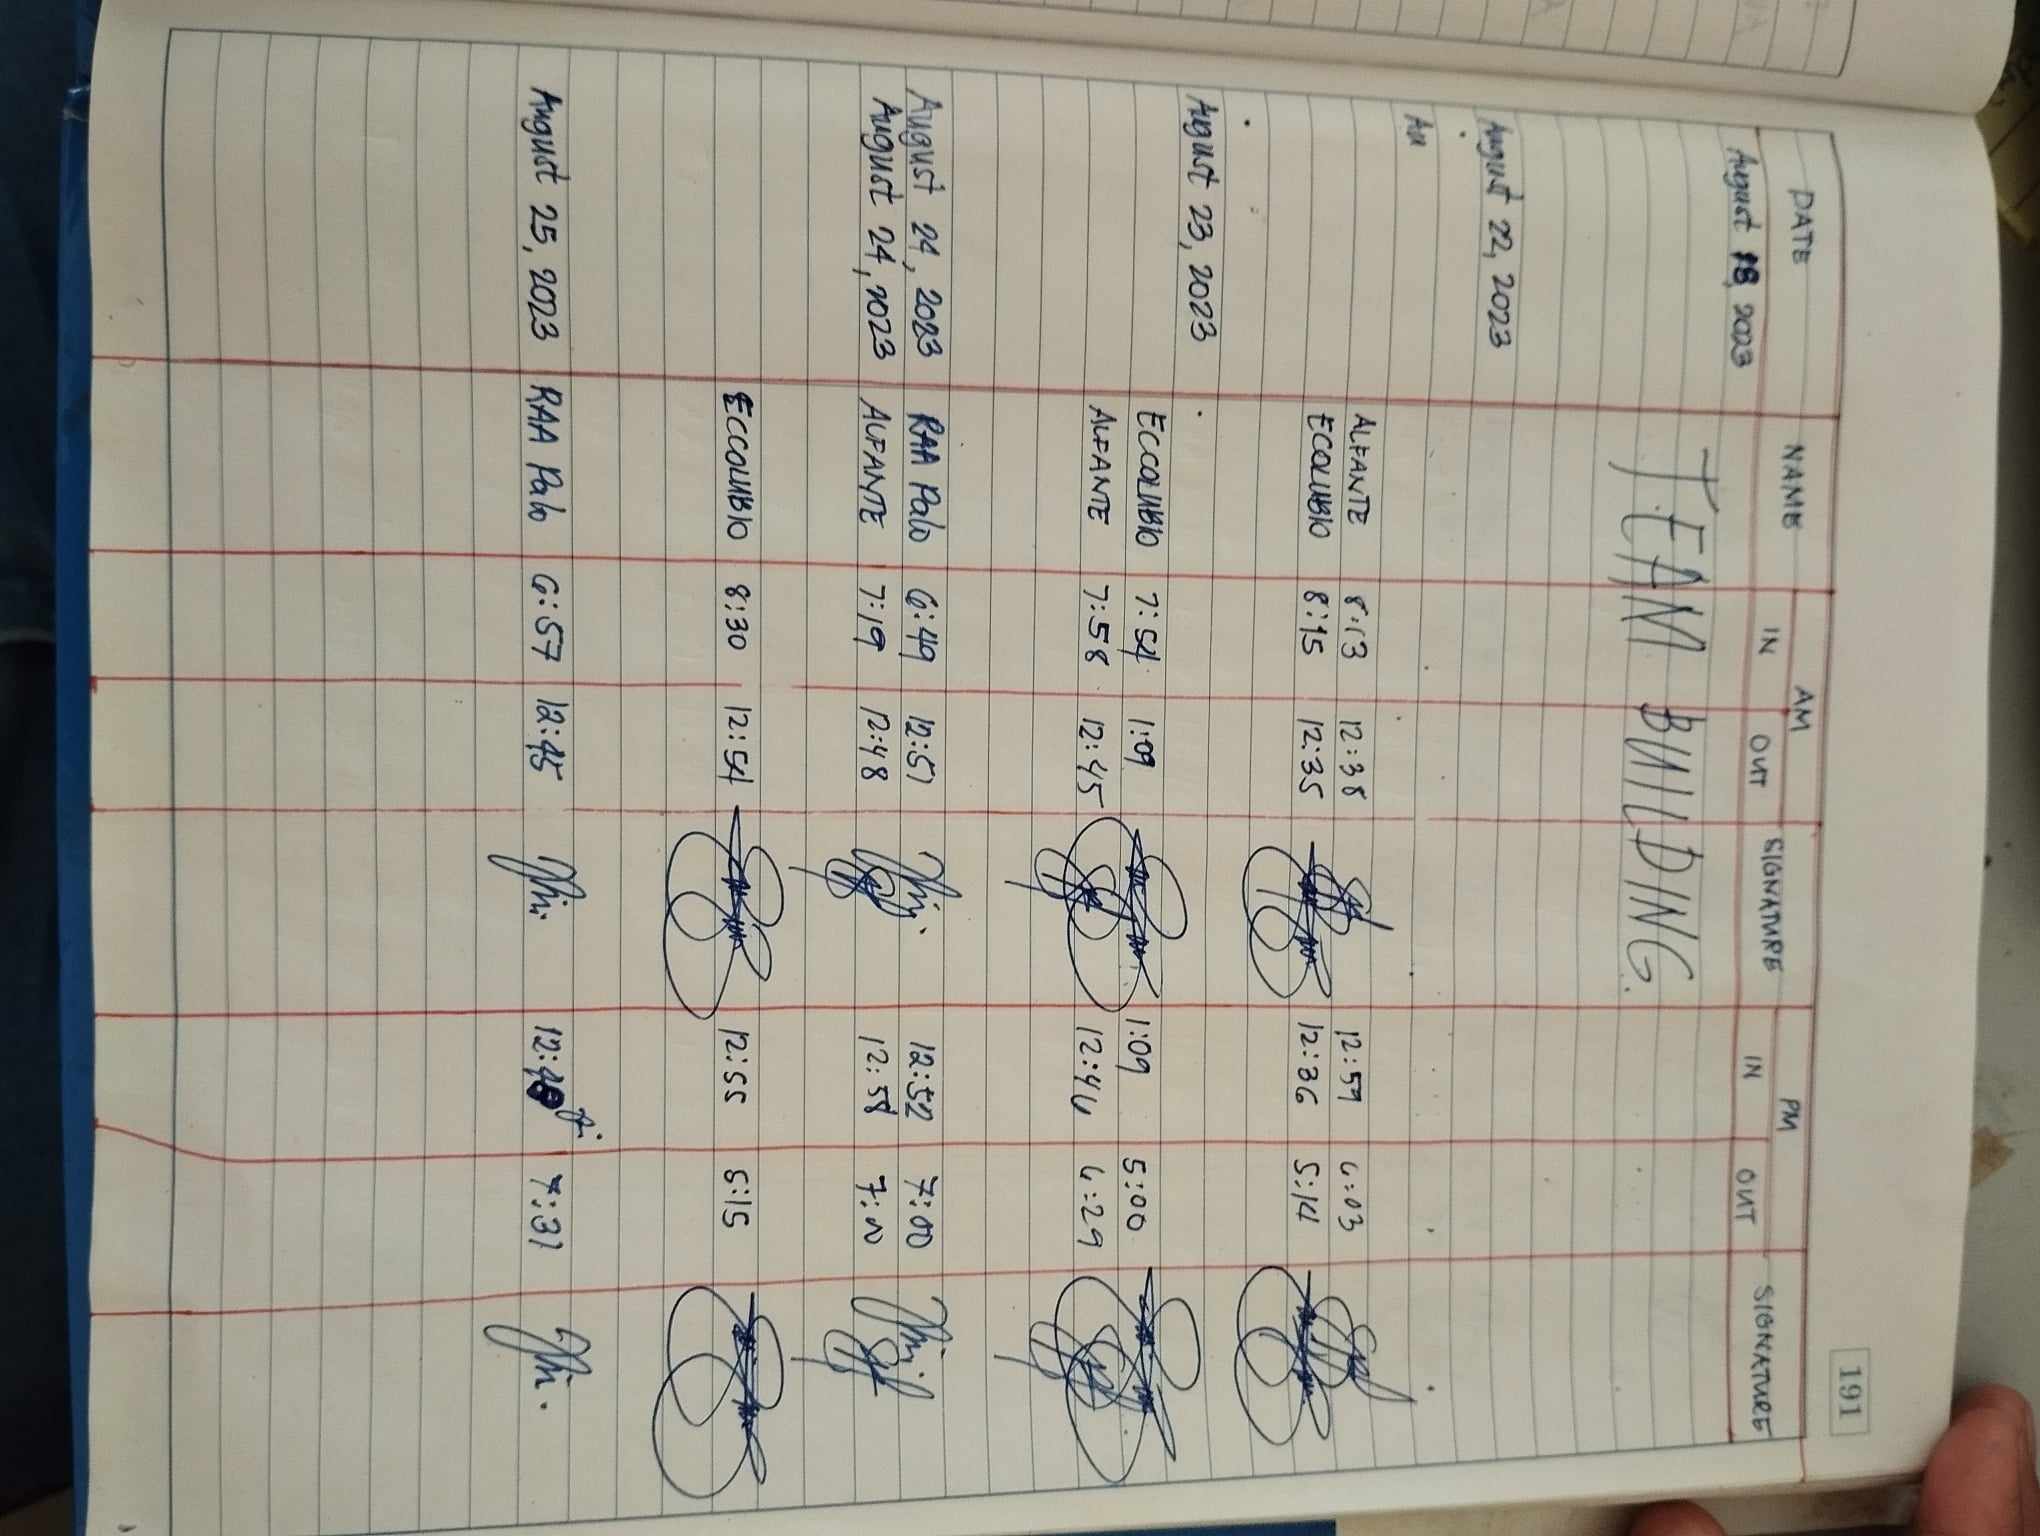 191
DATE NAME AM SIGNATURE PM SIGNATURE
IN OUT IN OUT
August 18, 2023
TEAM BUILDING.
August 22, 2023
Au
ALFANTE 8:13 12:38 12:59 6:03
ECOLUBIO 8:15 12:35 12:36 5:14
August 23, 2023
ECCOLUBIO 7:54 1:09 1:09 5:00
ALFANTE 7:58 12:45 12:46 6:29
August 24, 2023 RAA Palo 6:49 12:51 12:52 7:00
August 24, 2023 ALFANTE 7:19 12:48 12:58 7:00
ECCOLUBIO 8:30 12:54 12:55 5:15
August 25, 2023 RAA Palo 6:57 12:45 7:31